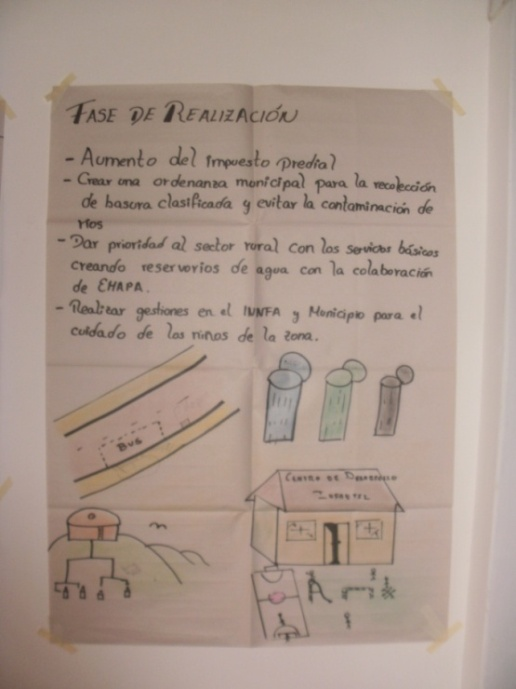 FASE DE REALIZACIÓN
- Aumento del impuesto predial
- Crear una ordenanza municipal para la recolección
de basura clasificada y evitar la contaminación de
rios
- Dar prioridad al sector rural con los servicios básicos
creando reservorios de agua con la colaboración
de EMAPA.
- Realizar gestiones en el INNFA y Municipio para el
cuidado de los niños de la zona.
BUS
CENTRO DE DESARROLLO
INFANTIL